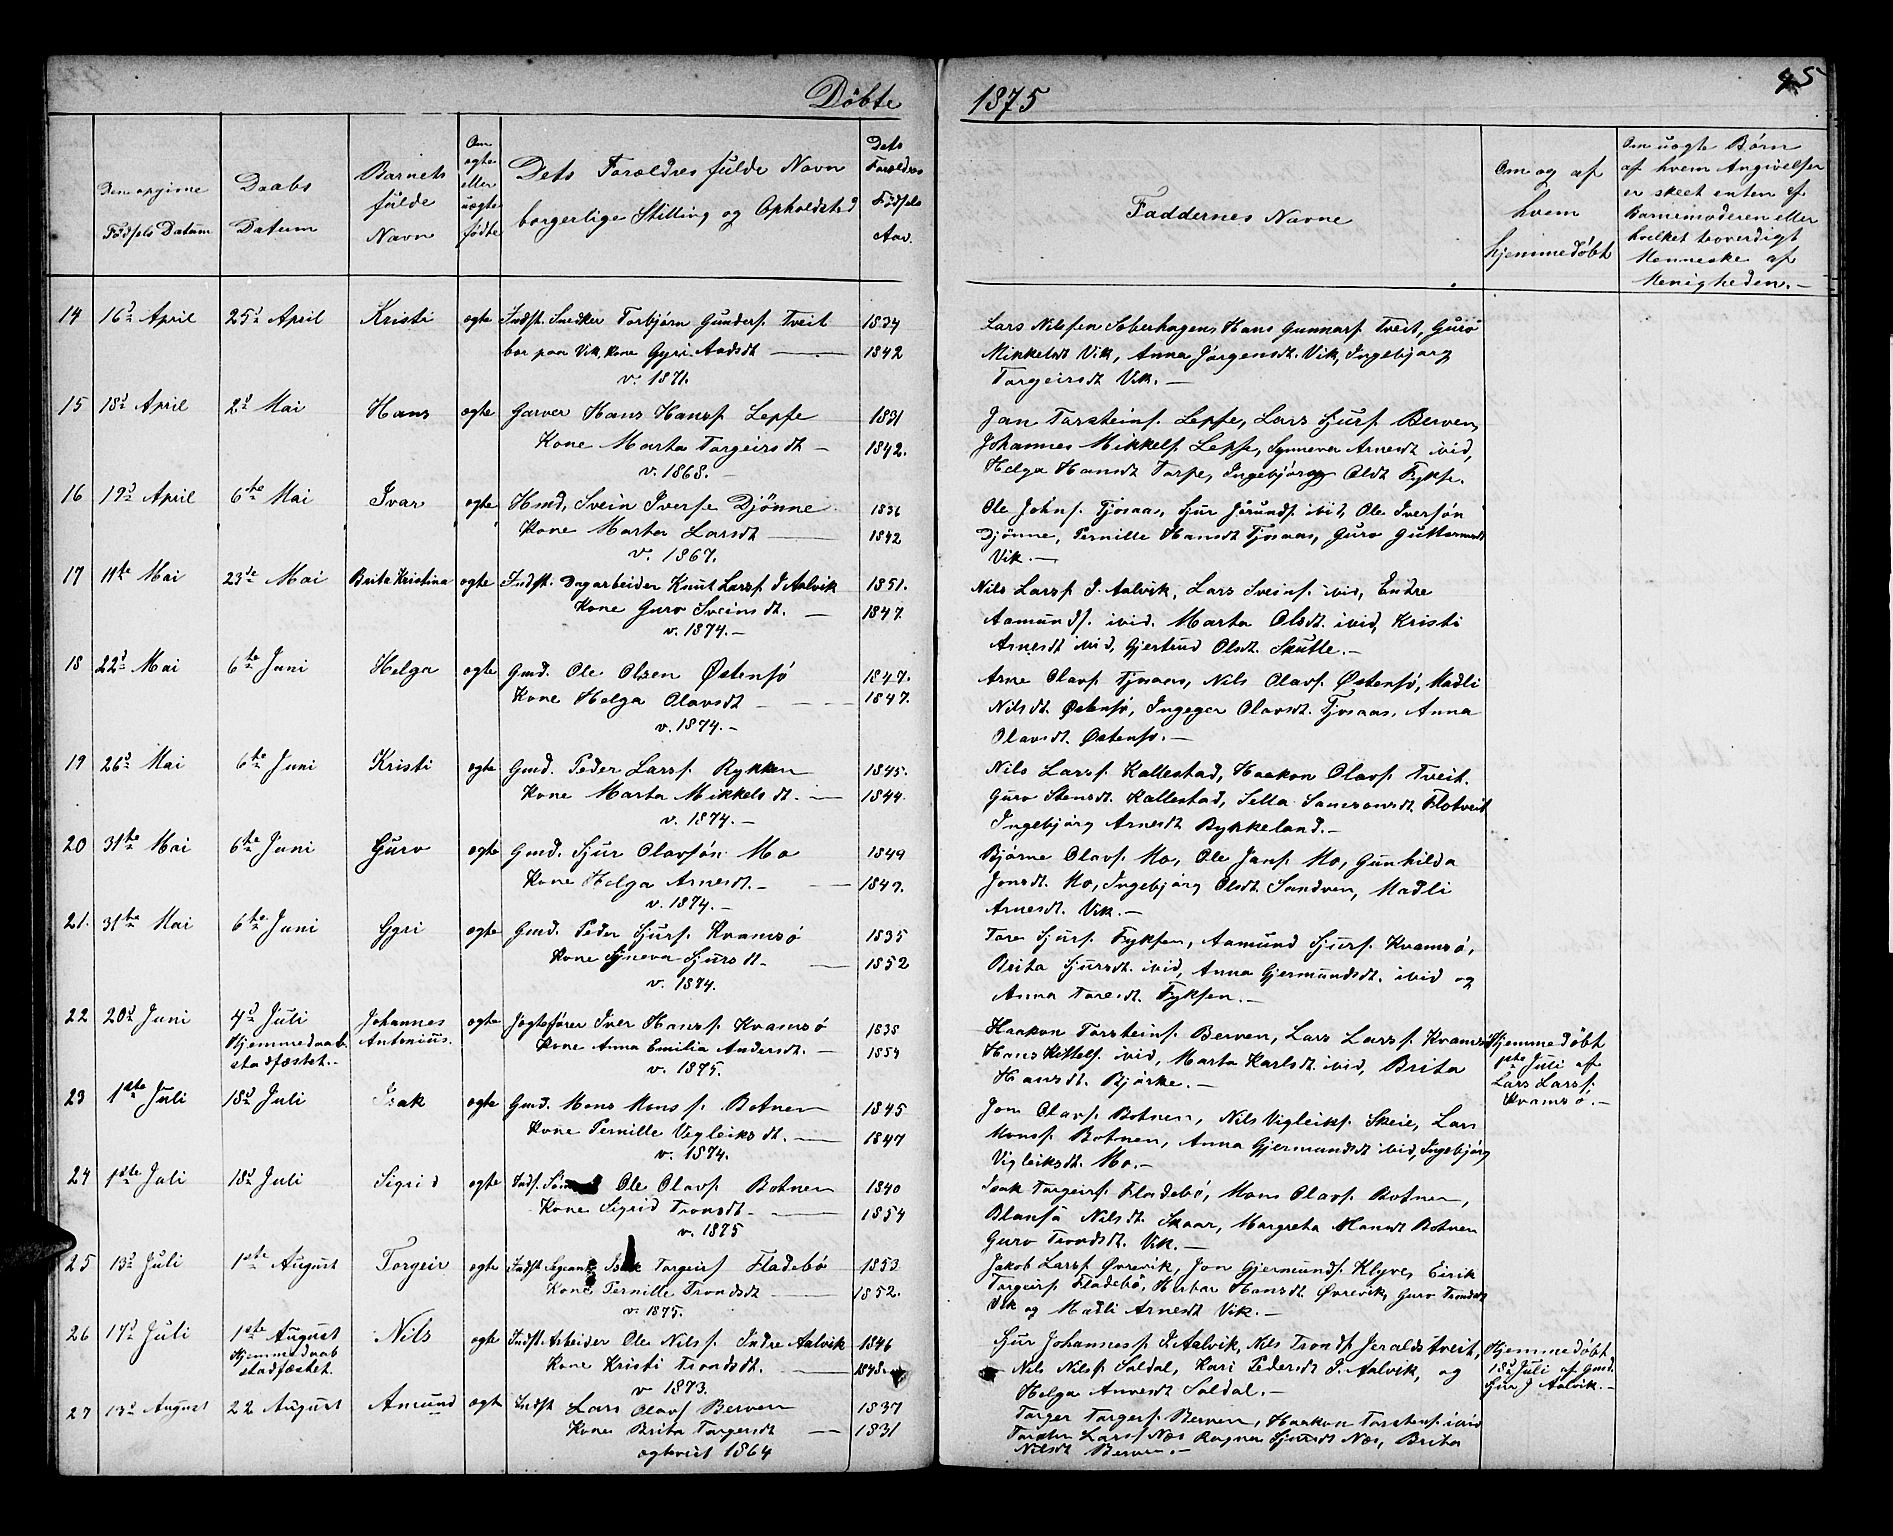 Döbte 1875
45
Den opgivne Fødsels Datum
Daabs Datum
Barnets fulde Navn
Om ægte eller uægte födte
Dets Forældres fulde Navn borgerlige Stilling og Opholdsted
Dets Forældres Fødsels Aar.
Faddernes Navne
Om og af hvem hjemmedöbt
Om uægte Børn af hvem Angivelsen er skeet enten af Barnemoderen eller hvilket troverdigt Menneske af Menigheden.-
14 16d April 25d April Kristi ægte Indst. Snedker Torbjørn Gunders. Tveit 1834
bor paa Vik, Kone Gyri Aadsdt 1842
v. 1871.
Lars Nilssen Soberhagen, Hans Gunnars. Tveit, Guro
Mikkelsdt Vik, Anna Jørgensdt. Vik, Ingebjørg
Torgeirsdt Vik.-
15 18d April 2d Mai Hans ægte Garver Hans Hanss. Lepse 1831
Kone Marta Torgeirsdt 1842.
v. 1868.-
Jan Torsteins. Lepse, Lars Sjurs. Berven,
Johannes Mikkels. Lepse, Synneva Arnesdt ibid,
Helga Hansdt Torpe, Ingebjørg Olsdt Fykse.
16 19d April 6te Mai Ivar ægte Hmd. Svein Iverse Djönne 1836
Kone Marta Larsdt 1842
v. 1867.
Ole Johns. Tjosaas, Sjur Jörunds. ibid, Ole Iversön
Djönne, Pernille Hansdt Tjosaas, Guro Guttormsdt
Vik.-
17 11te Mai 23de Mai Brita Kristina ægte Indst. Dagarbeider Knut Larss. I. Aalvik 1851.
Kone Guro Sveinsdt. 1847.
v. 1874.-
Nils Larss. I. Aalvik, Lars Sveins. ibid, Endre
Aamunds. ibid. Marta Olsdt. ibid, Kristi
Arnesdt ibid, Gjertrud Olsdt. Skutle.-
18 22d Mai 6te Juni Helga ægte Gmd. Ole Olsen Østensö 1847.
Kone Helga Olavsdt 1847.
v. 1874.-
Arne Olavs. Tjosaas, Nils Olavs. Østensö, Madli
Nilsdt. Østensö, Ingeger Olavsdt. Tjosaas, Anna
Olavsdt. Østensö.-
19 26d Mai 6te Juni Kristi ægte Gmd. Peder Larss. Rykken 1845.
Kone Marta Mikkelsdt. 1844.
v. 1874.-
Nils Larss. Kallestad, Haakon Olavs. Tveit.
Guro Stensdt. Kallestad, Sella Samsonsdt Flotveit
Ingebjørg Arnesdt Byrkeland.-
20 31te Mai 6te Juni Guro ægte Gmd. Sjur Olavsön Mo 1849
Kone Helga Arnesdt.- 1847.
v. 1874.-
Bjørne Olavs. Mo, Ole Jans. Mo, Gunhilda
Jonsdt. Mo, Ingebjørg Olsdt Sandven, Madli
Arnesdt. Vik.-
21. 31te Mai 6te Juni Gyri ægte Gmd. Peder Sjurs. Kvamsö 1835
Kone Synneva Sjursdt. 1852
v. 1874.
Tore Sjurs. Fyksen, Aamund Sjurs. Kvamsö,
Brita Sjursdt. ibid, Anna Gjermundsdt. ibid og
Anna Toresdt. Fyksen.-
22 20d Juni 4d Juli Johannes ægte Jagtefører Iver Hanss. Kvamsö 1838
Hjemmedaab Antonius. Kone Anna Emilia Andersdt. 1854
stadfæstet.- v. 1875.
Haakon Torsteins. Berven, Lars Larss. Kvamsö
Hans Kittels. ibid, Marta Karlsdt ibid, Brita
Hansdt. Bjørke.-
Hjemmedöbt
1ste Juli af
Lars Larss.
Kvamsö.-
23 1ste Juli 18d Juli Isak ægte Gmd. Mons Mons s. Botnen 1845
Kone Pernille Vigleiksdt. 1847
v. 1874.
Jon Olavs. Botnen, Nils Vigleiks. Skeie, Lars
Monss. Botnen, Anna Gjermundsdt ibid, Ingebjørg
Vigleiksdt. Mo.-
24 1ste Juli 18d Juli Sigrid ægte Inds. Ole Olavs. Botnen 1840
Kone Sigrid Trondsdt. 1854
v. 1875
Isak Torgeirs. Fladebö, Mons Olavs. Botnen,
Blansa Nilsdt. Skaar, Margreta Monsdt Botnen
Guro Trondsdt. Vik.-
25 13d Juli 1ste August Torgeir ægte Indst. Isak Torgeirs. Fladebö 1853
Kone Pernille Trondsdt 1852.
v. 1875.
Jakob Larss. Øvrevik, Jon Gjermunds. Klyve, Eirik
Torgeirs. Fladebö, Herbor Hansdt Øvrevik, Guro Trondsdt
Vik og Madli Arnesdt Vik.-
26 17d Juli 1ste August Nils ægte Indst. Arbeider Ole Nils s. Indre Aalvik 1846
Hjemmedaab Kone Kristi Trondsdt. 1848.
stadfæstet. v 1873.
Sjur Johanness. I. Aalvik, Nils Tronds. Jeralds Tveit,
Nils Nilss. Soldal, Kari Pedersdt I. Aalvik, og
Helga Arnesdt Soldal.-
Hjemmedöbt
18d Juli af Gmd.
Sjur J Aalvik.-
27 13d August 22 August Amund ægte Indst Lars Olavs. Berven 1837
Kone Brita Torgersdt 1831
ægteviet 1864
Torger Torgers. Berven, Haakon Torstens. ibid
Torsten Larss. Næs Ragna Sjursdt Næs, Brita
Nilsdt Berven.-